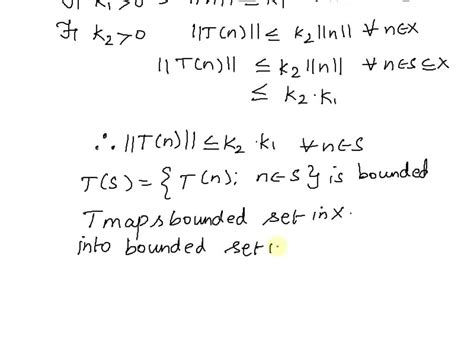 ∃ k₂>0 ||T(n)|| ≤ k₂||n|| ∀ n∈X
||T(n)|| ≤ k₂||n|| ∀ n∈S⊆X
≤ k₂·k₁
∴ ||T(n)|| ≤ k₂·k₁ ∀ n∈S
T(S) = {T(n); n∈S} is bounded
T maps bounded set in X.
into bounded set i